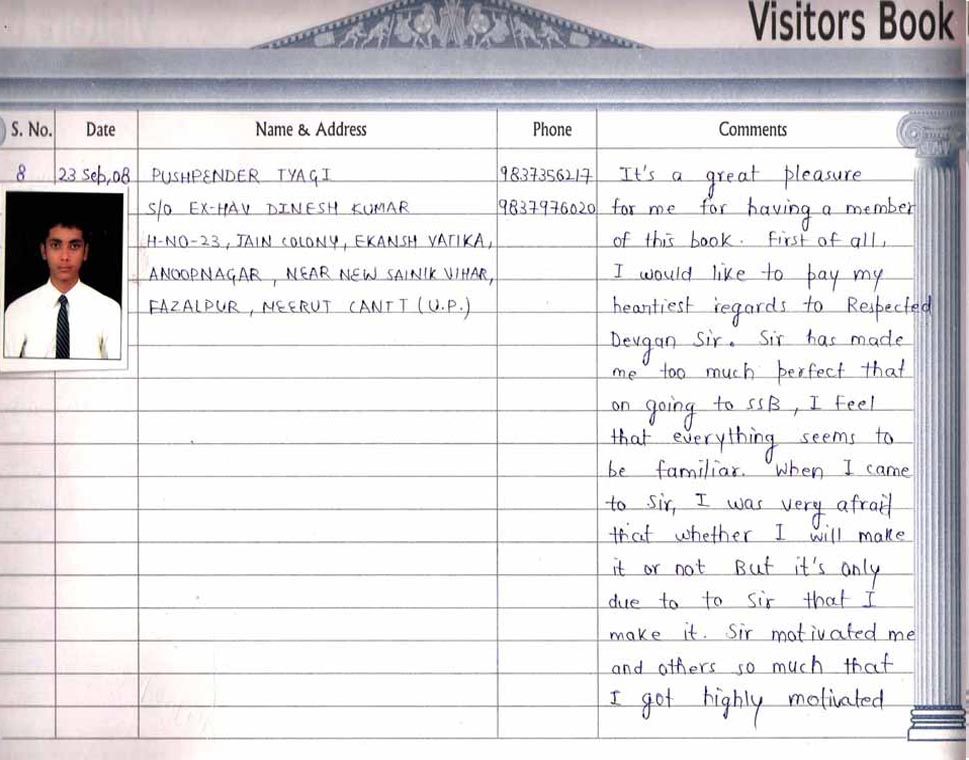 Visitors Book
S. No. Date Name & Address Phone Comments
8 23 Seb,08 PUSHPENDER TYAGI 9837356217 It's a great pleasure
S/O EX-HAV DINESH KUMAR 9837976020 for me for having a member
H-NO-23, JAIN COLONY, EKANSH VATIKA, of this book. First of all,
ANOOPNAGAR, NEAR NEW SAINIK VIHAR, I would like to pay my
FAZALPUR, MEERUT CANTT (U.P.) heartiest regards to Respected
Devgan Sir. Sir has made
me too much perfect that
on going to SSB, I feel
that everything seems to
be familiar. When I came
to Sir, I was very afraid
that whether I will make
it or not But it's only
due to to Sir that I
make it. Sir motivated me
and others so much that
I got highly motivated